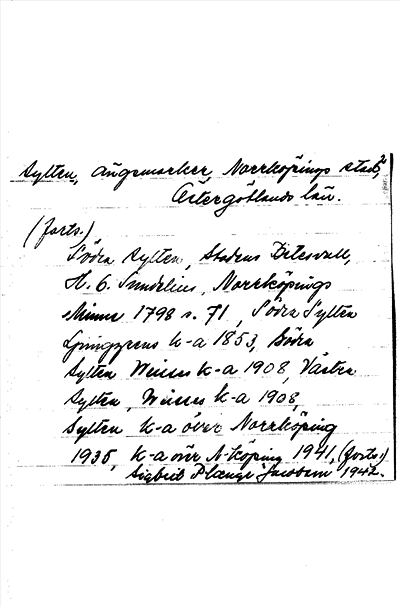 Sylten, ängsmarker, Norrköpings stad, 2
Östergötlands län.
(forts.)
Södra Sylten, Stadens Betesvall,
H. O. Sundelius, Norrköpings
Minne 1798 s. 71, Södra Sylten
Ljunggrens k-a 1853, Södra
Sylten Weisses k-a 1908, Västra
Sylten, Weisses k-a 1908,
Sylten k-a över Norrköping
1935, k-a över N-köping 1941, (forts.)
Sigbrit Plænge Jacobson 1942.